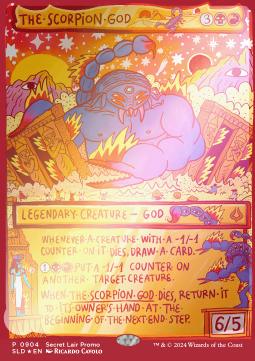 THE·SCORPION·GOD 3
LEGENDARY·CREATURE – GOD
WHENEVER·A·CREATURE·WITH·A·-1/-1
COUNTER·ON·IT·DIES, DRAW·A·CARD.
1 PUT·A·-1/-1 COUNTER ON
ANOTHER·TARGET·CREATURE.
WHEN·THE·SCORPION·GOD·DIES, RETURN·IT
TO·ITS·OWNER'S·HAND·AT·THE
BEGINNING·OF·THE·NEXT·END·STEP.
6/5
P 0904 Secret Lair Promo
SLD★EN RICARDO CAVOLO
™ & © 2024 Wizards of the Coast